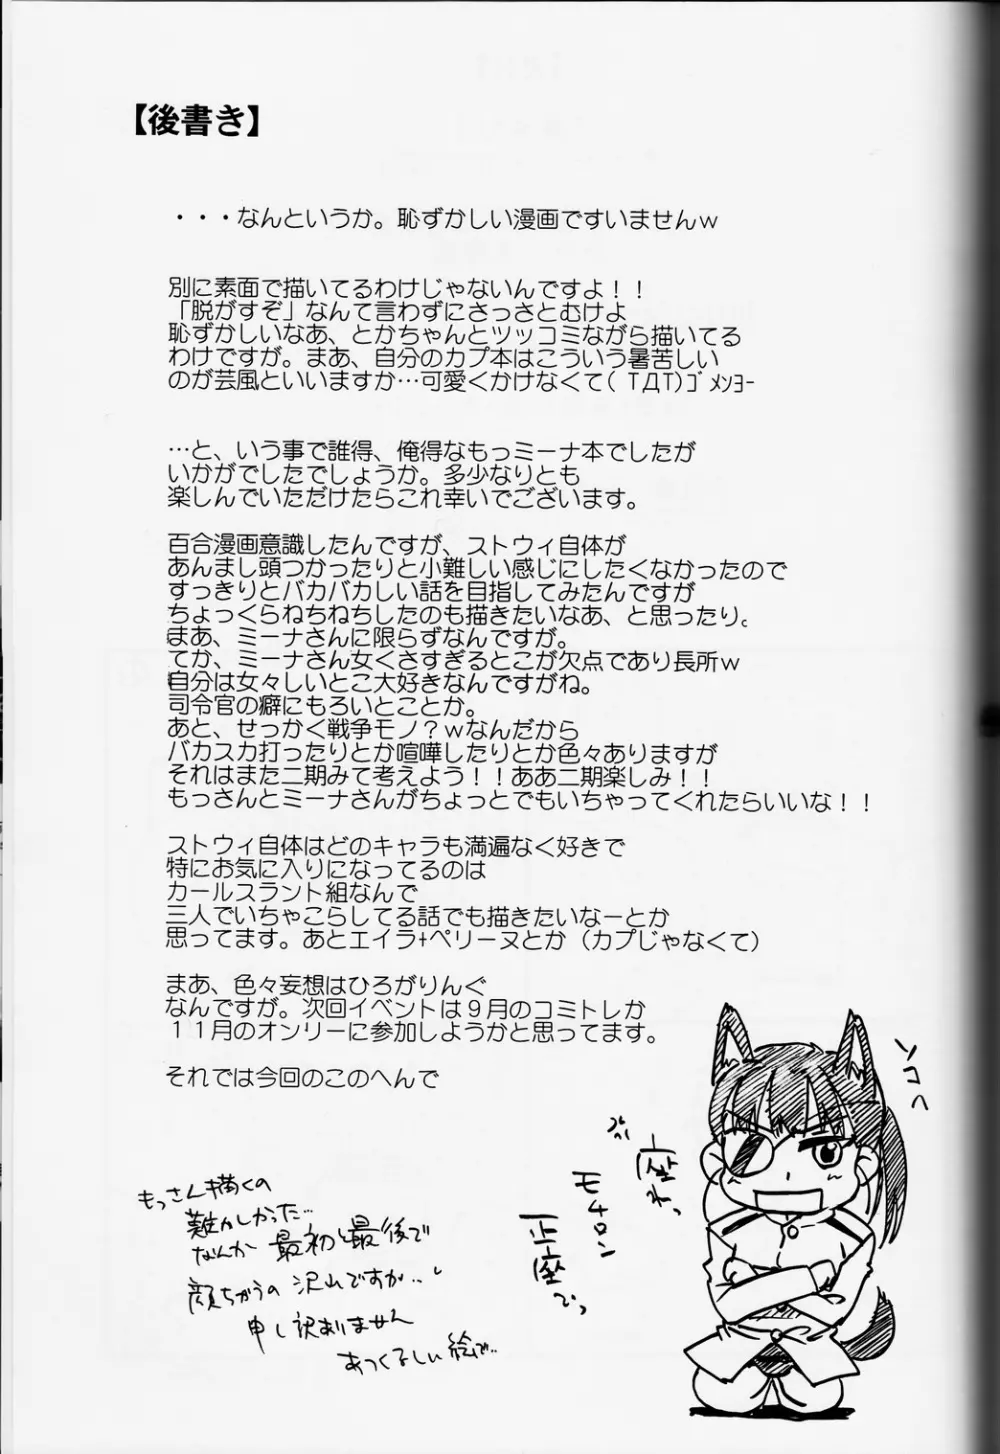 【後書き】
・・・なんというか。恥ずかしい漫画ですいませんｗ
別に素面で描いてるわけじゃないんですよ！！
「脱がすぞ」なんて言わずにさっさとむけよ
恥ずかしいなあ、とかちゃんとツッコミながら描いてる
わけですが。まあ、自分のカプ本はこういう暑苦しい
のが芸風といいますか…可愛くかけなくて( TДT)ｺﾞﾒﾝﾖｰ
…と、いう事で誰得、俺得なもっミーナ本でしたが
いかがでしたでしょうか。多少なりとも
楽しんでいただけたらこれ幸いでございます。
百合漫画意識したんですが、ストウィ自体が
あんまし頭つかったりと小難しい感じにしたくなかったので
すっきりとバカバカしい話を目指してみたんですが
ちょっくらねちねちしたのも描きたいなあ、と思ったり。
まあ、ミーナさんに限らずなんですが。
てか、ミーナさん女くさすぎるとこが欠点であり長所ｗ
自分は女々しいとこ大好きなんですがね。
司令官の癖にもろいとことか。
あと、せっかく戦争モノ？ｗなんだから
バカスカ打ったりとか喧嘩したりとか色々ありますが
それはまた二期みて考えよう！！ああ二期楽しみ！！
もっさんとミーナさんがちょっとでもいちゃってくれたらいいな！！
ストウィ自体はどのキャラも満遍なく好きで
特にお気に入りになってるのは
カールスラント組なんで
三人でいちゃこらしてる話でも描きたいなーとか
思ってます。あとエイラ+ペリーヌとか（カプじゃなくて）
まあ、色々妄想はひろがりんぐ
なんですが。次回イベントは９月のコミトレか
１１月のオンリーに参加しようかと思ってます。
それでは今回のこのへんで
ソコへ
座れっ
モチロン
正座でっ
もっさん描くの
難かしかった…
なんか 最初と最後で
顔ちがうの沢山ですが…
申し訳ありません
あつくるしい絵で…